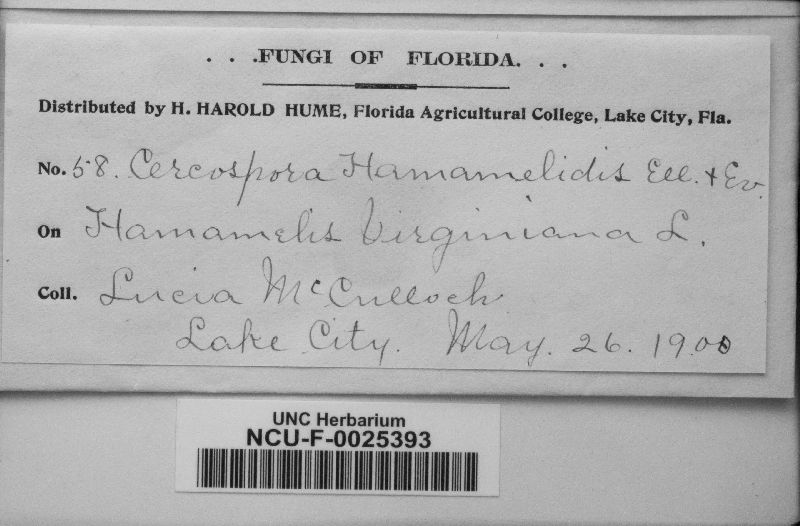 . . .FUNGI OF FLORIDA. . .
Distributed by H. HAROLD HUME, Florida Agricultural College, Lake City, Fla.
No. 58. Cercospora Hamamelidis Ell. + Ev.
On Hamamelis Virginiana L.
Coll. Lucia McCulloch
Lake City. May. 26. 1900
UNC Herbarium
NCU-F-0025393